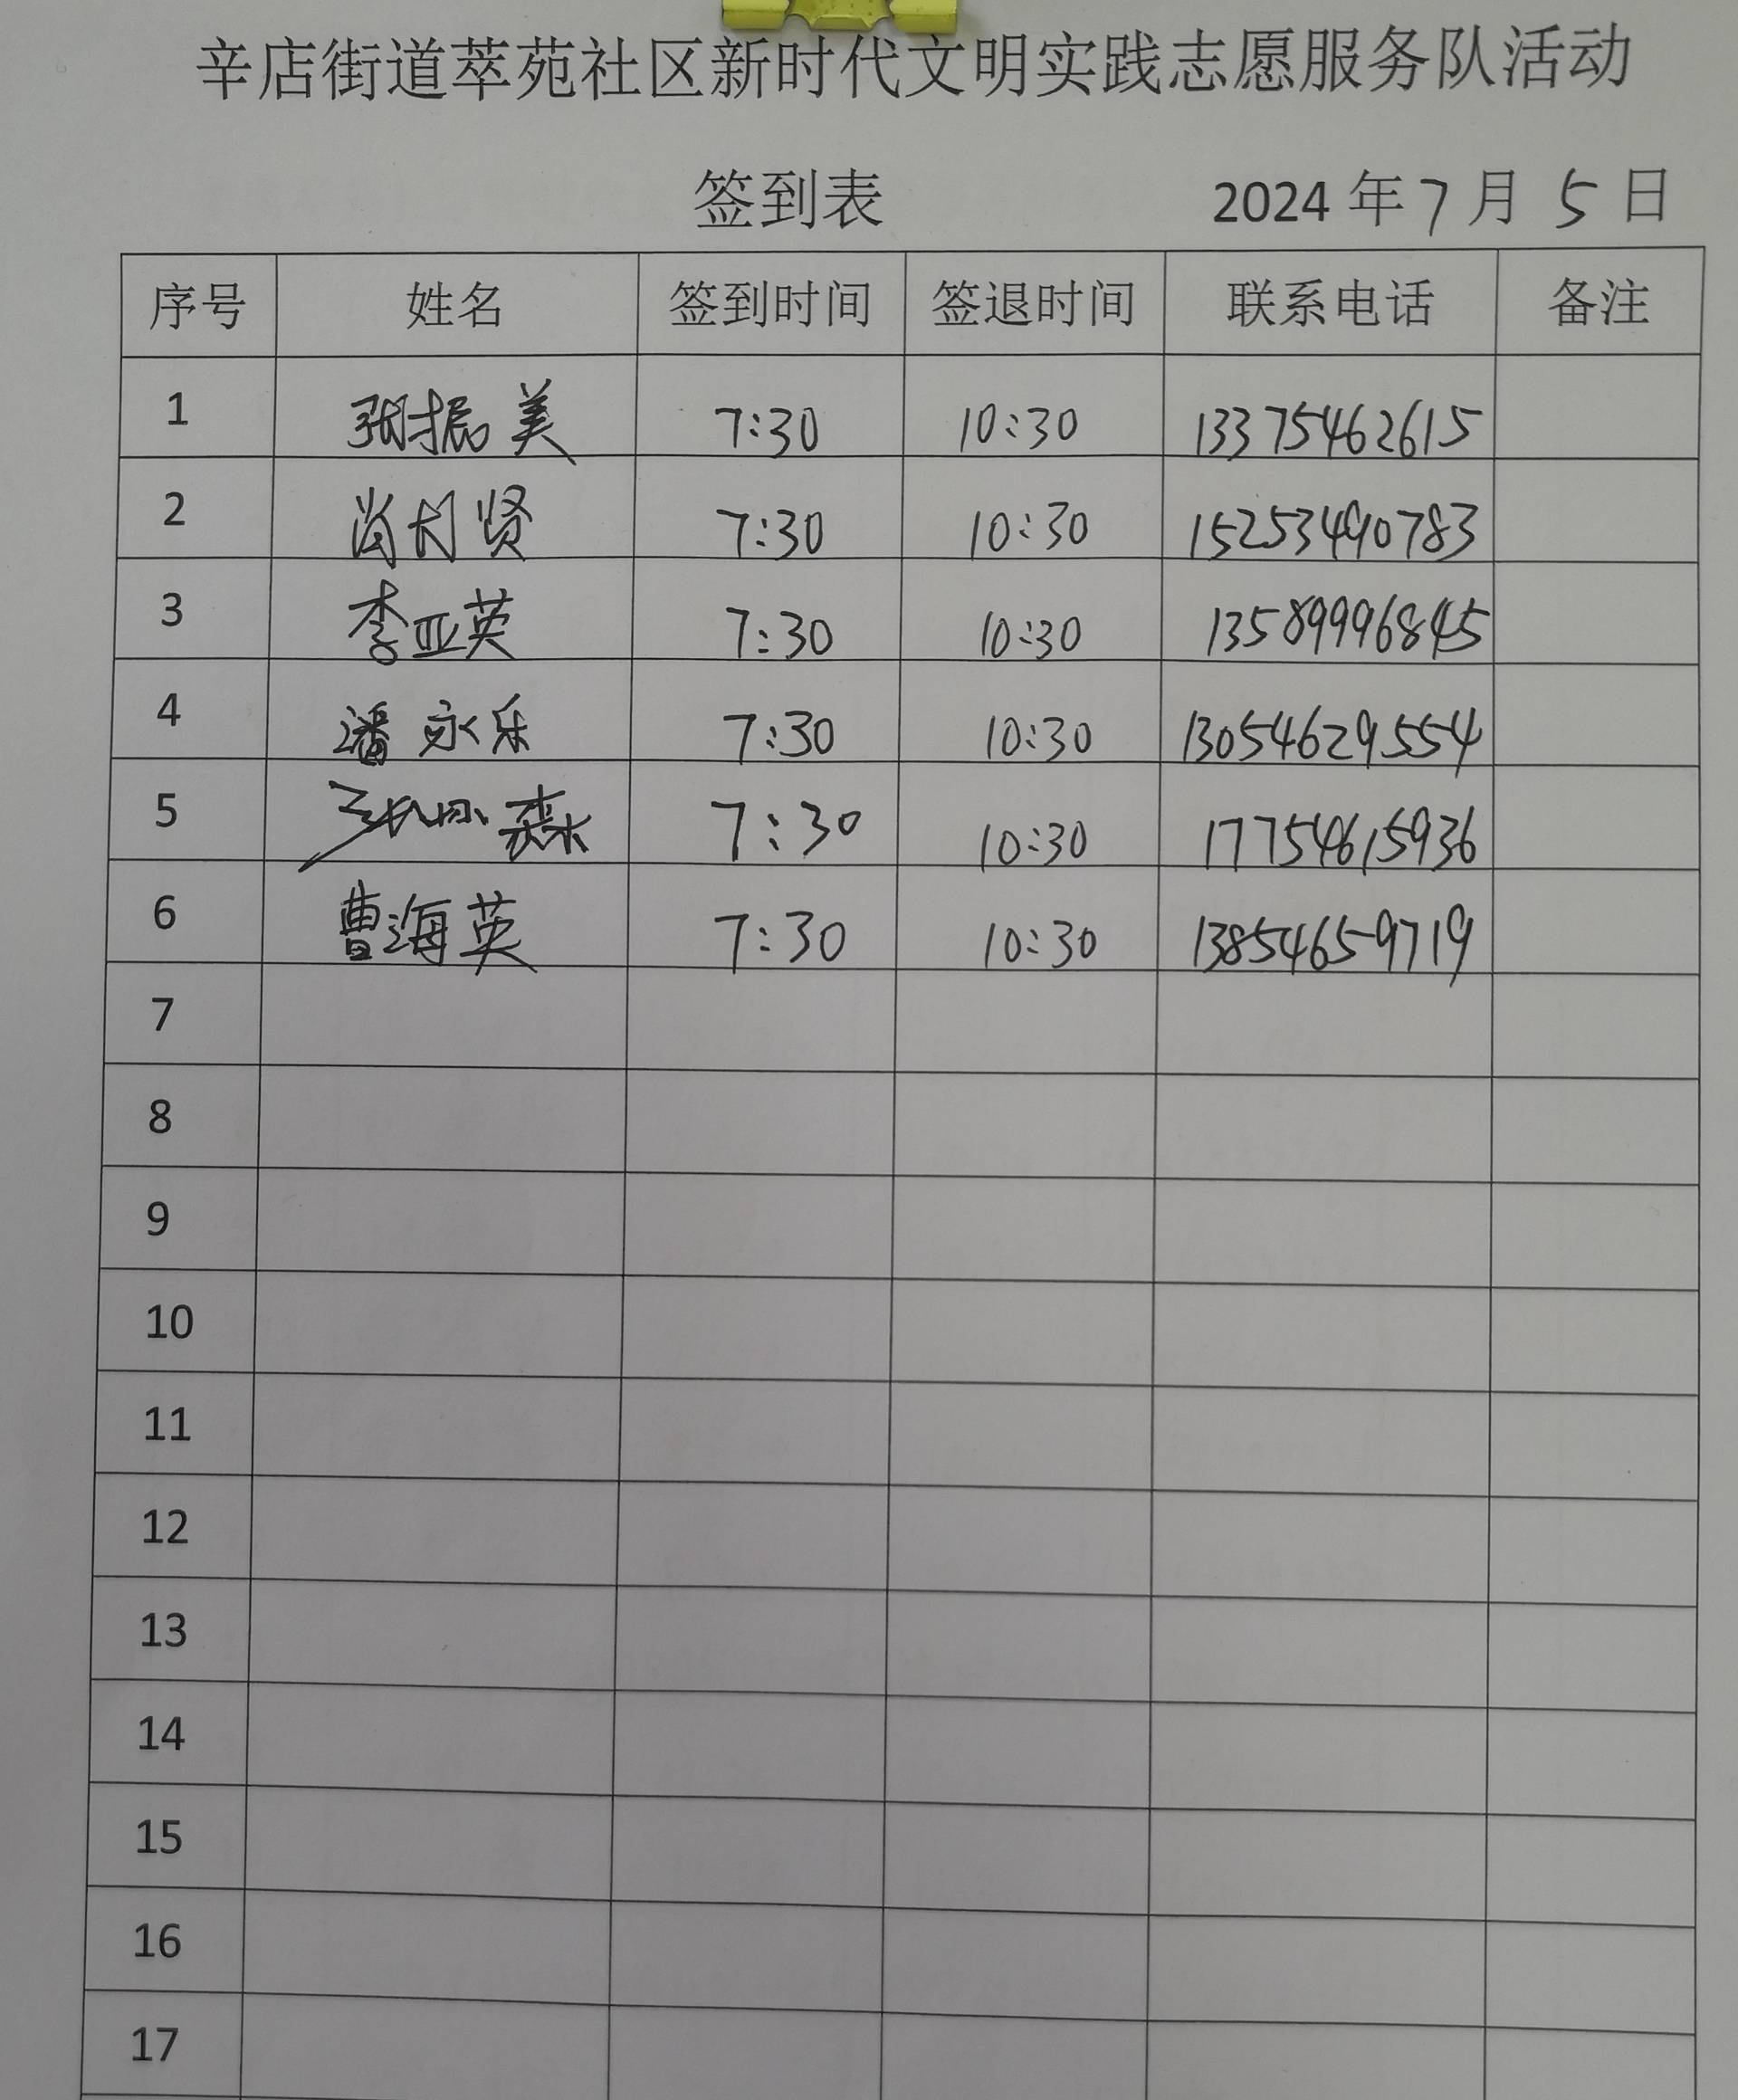 辛店街道萃苑社区新时代文明实践志愿服务队活动
签到表 2024 年 7 月 5 日
序号 姓名 签到时间 签退时间 联系电话 备注
1 张振美 7:30 10:30 13375462615
2 贤 7:30 10:30 15253490783
3 李亚英 7:30 10:30 13589996845
4 潘永乐 7:30 10:30 13054629554
5 森 7:30 10:30 17754615936
6 曹海英 7:30 10:30 13854659719
7
8
9
10
11
12
13
14
15
16
17